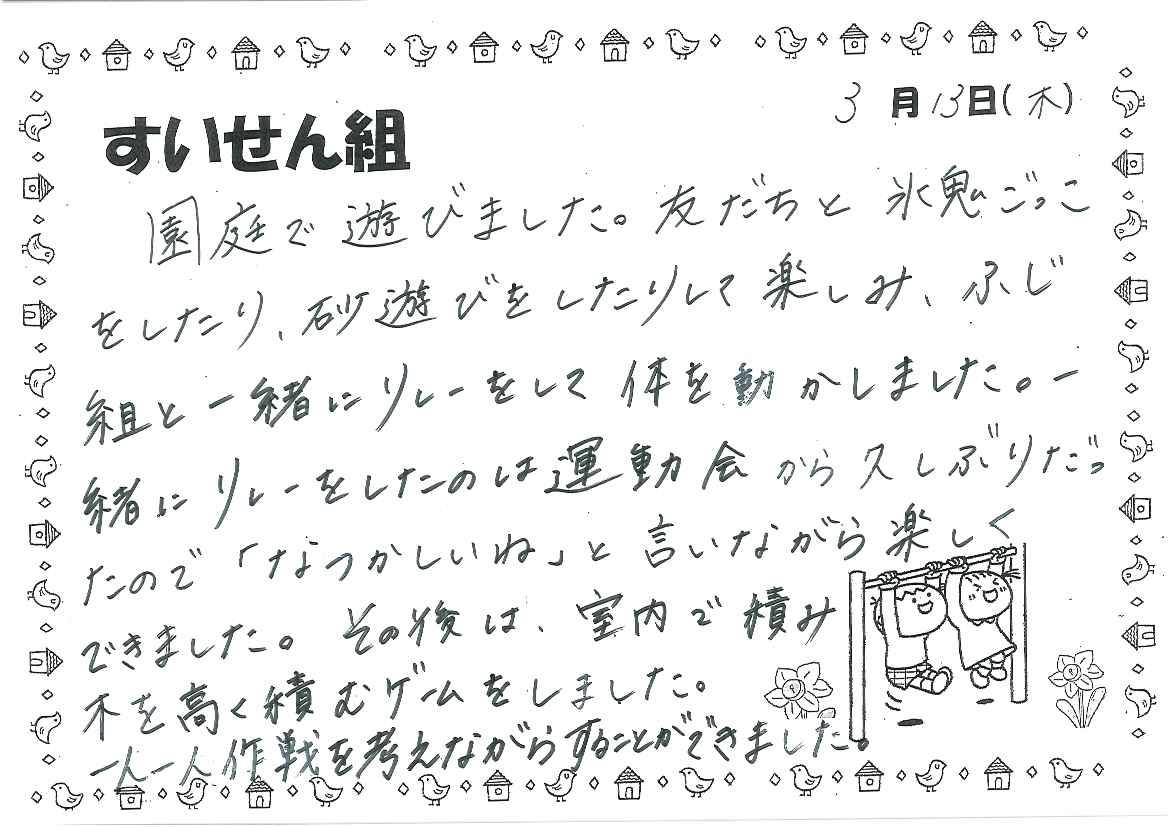 3月13日(木)
すいせん組
園庭で遊びました。友だちと氷鬼ごっこ
をしたり、砂遊びをしたりして楽しみ、ふじ
組と一緒にリレーをして体を動かしました。一
緒にリレーをしたのは運動会から久しぶりだっ
たので「なつかしいね」と言いながら楽しく
できました。その後は、室内で積み
木を高く積むゲームをしました。
一人一人作戦を考えながらすることができました。